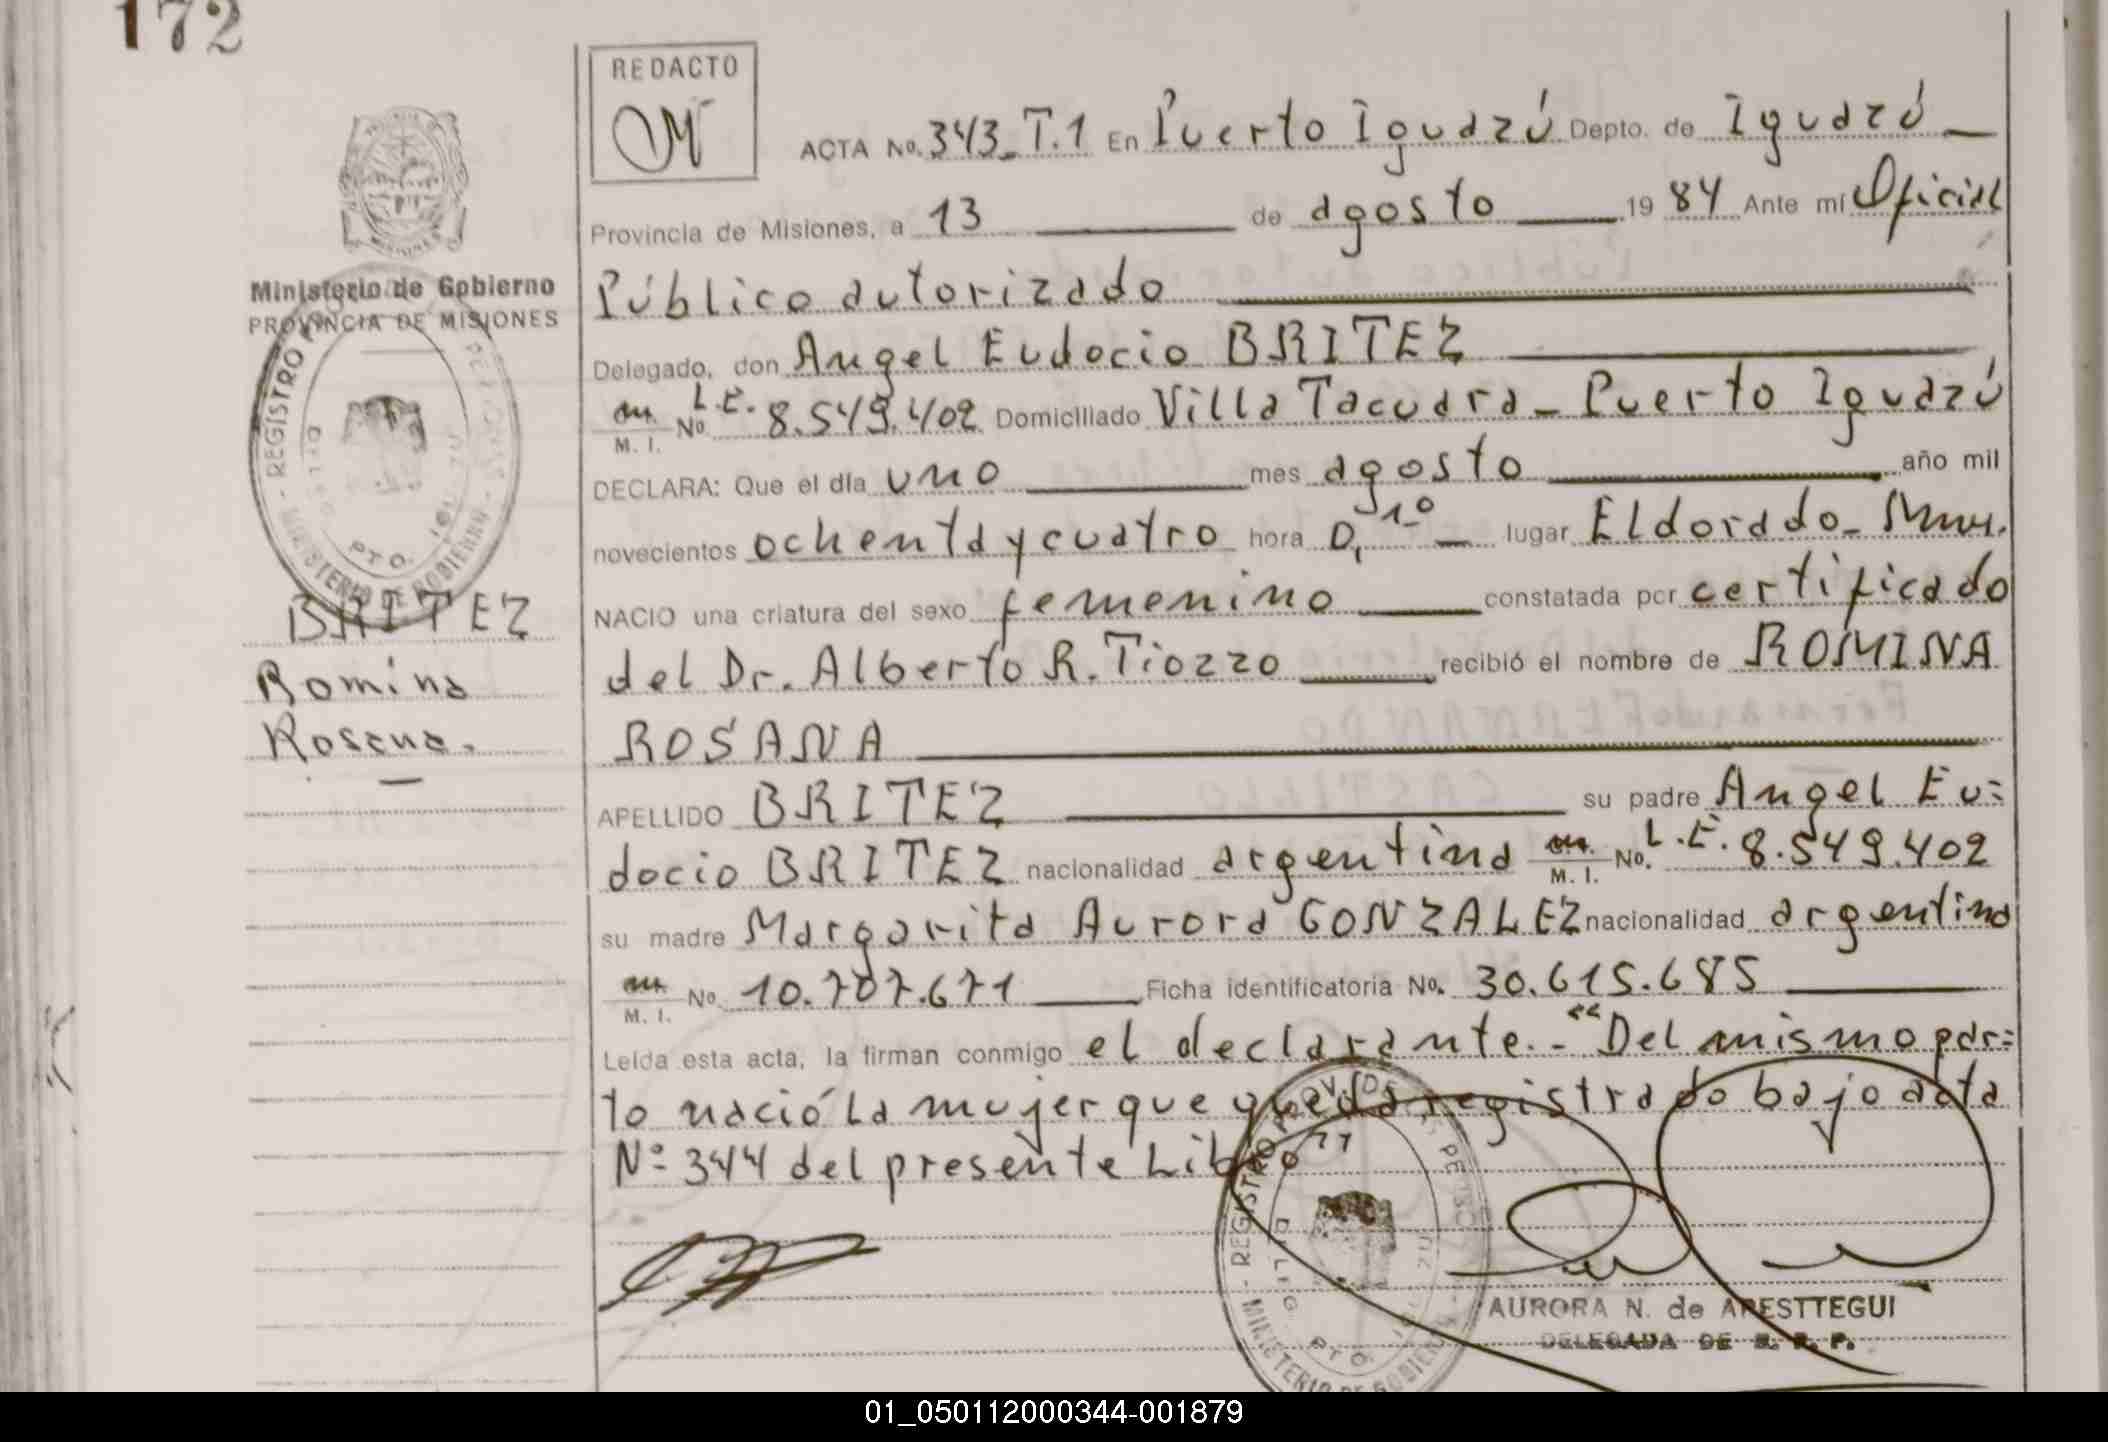 172
REDACTO
ACTA No. 343_T.1 En Puerto Iguazú Depto. de Iguazú
Provincia de Misiones, a 13 de agosto 1984 Ante mí Oficial
Público autorizado
Delegado, don Angel Eudocio BRITEZ
M. I. No. L.E. 8.549.402 Domiciliado Villa Tacuara - Puerto Iguazú
DECLARA: Que el día uno mes agosto año mil
novecientos ochenta y cuatro hora 0,10 lugar Eldorado -
NACIO una criatura del sexo femenino constatada por certificado
del Dr. Alberto R. Tiozzo recibió el nombre de ROMINA
ROSANA
APELLIDO BRITEZ su padre Angel Eu=
docio BRITEZ nacionalidad argentina M. I. No. L.E. 8.549.402
su madre Margarita Aurora GONZALEZ nacionalidad argentina
M. I. No. 10.707.671 Ficha identificatoria No. 30.615.685
Leída esta acta, la firman conmigo el declarante.- "Del mismo par=
to nació la mujer que queda registrado bajo acta
Nº 344 del presente Libro"
AURORA N. de ARESTTEGUI
DELEGADA DE R. P.
Ministerio de Gobierno
PROVINCIA DE MISIONES
REGISTRO
MINISTERIO DE GOBIERNO
PTO.
BRITEZ
Romina
Rosana.
REGISTRO PROV. DE
MINISTERIO DE GOBIERNO
PTO.
01_050112000344-001879